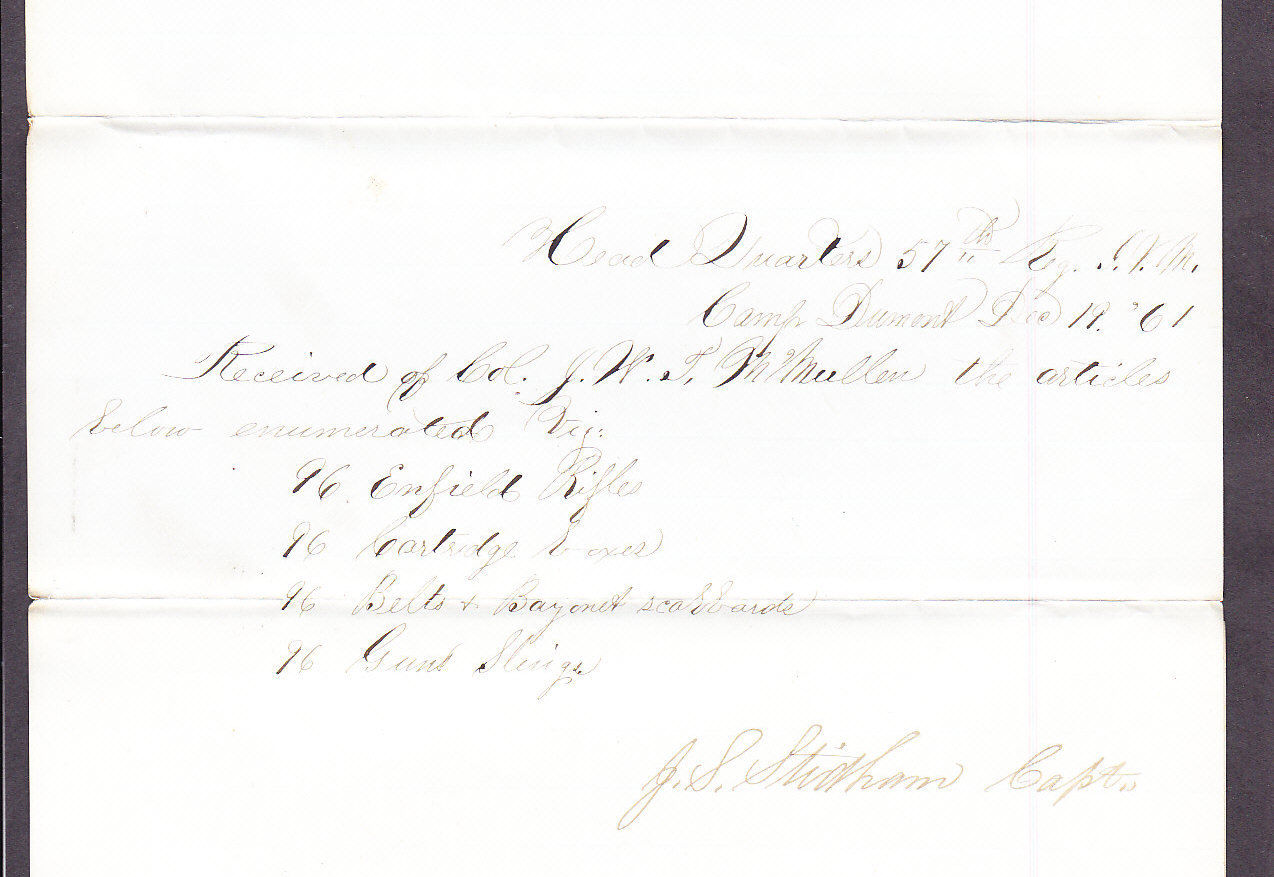 Head Quarters 57th Reg. I.V.M.
Camp Dumont Dec 19. "61
Received of Col. J. W. T. McMullen the articles
below enumerated Viz:
96 Enfield Rifles
96 Cartridge Boxes
96 Belts & Bayonet scabbards
96 Guns Slings
J. S. Stidham Capt.